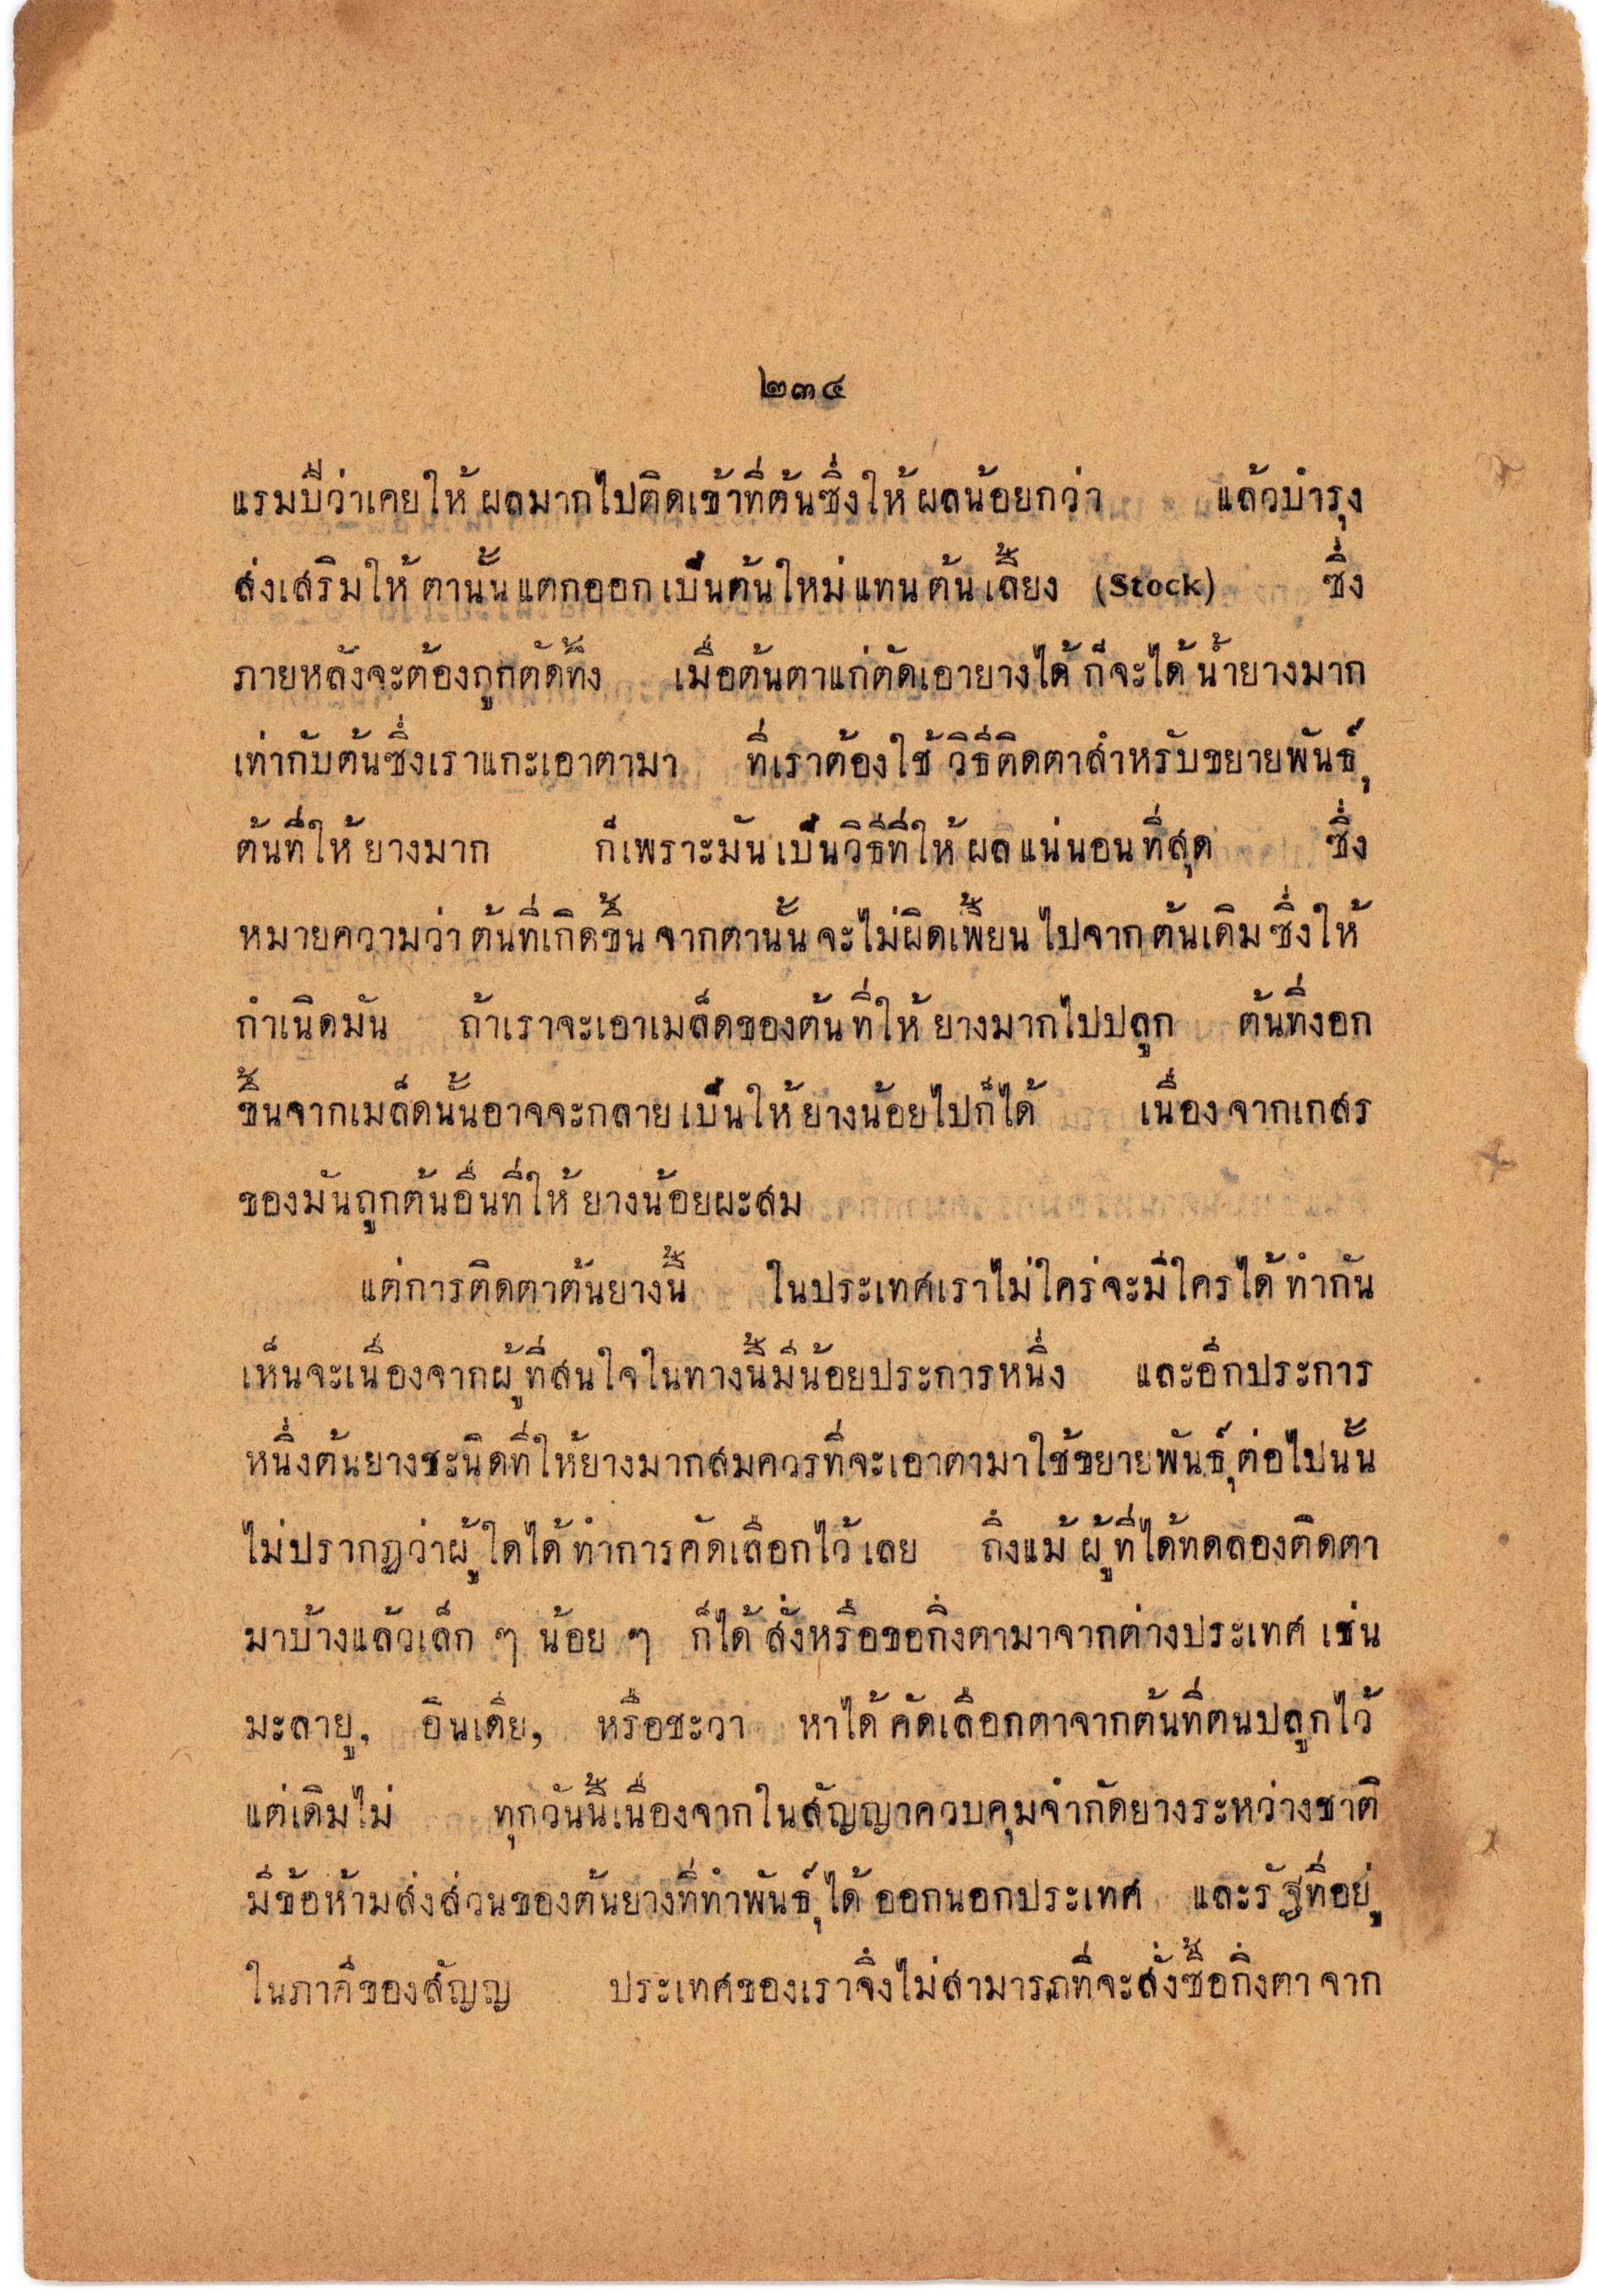 ๒๓๔
แรมปีว่าเคยให้ผลมากไปติดเข้าที่ต้นซึ่งให้ผลน้อยกว่า แล้วบำรุง
ส่งเสริมให้ตานั้นแตกออกเป็นต้นใหม่แทนต้นเลี้ยง (Stock) ซึ่ง
ภายหลังจะต้องถูกตัดทิ้ง เมื่อต้นตาแก่ตัดเอายางได้ก็จะได้น้ำยางมาก
เท่ากับต้นซึ่งเราแกะเอาตามา ที่เราต้องใช้วิธีติดตาสำหรับขยายพันธุ์
ต้นที่ให้ยางมาก ก็เพราะมันเป็นวิธีที่ให้ผลแน่นอนที่สุด ซึ่ง
หมายความว่าต้นที่เกิดขึ้นจากตานั้นจะไม่ผิดเพี้ยนไปจากต้นเดิมซึ่งให้
กำเนิดมัน ถ้าเราจะเอาเมล็ดของต้นที่ให้ยางมากไปปลูก ต้นที่งอก
ขึ้นจากเมล็ดนั้นอาจจะกลายเป็นให้ยางน้อยไปก็ได้ เนื่องจากเกสร
ของมันถูกต้นอื่นที่ให้ยางน้อยผะสม
แต่การติดตาต้นยางนี้ ในประเทศเราไม่ใคร่จะมีใครได้ทำกัน
เห็นจะเนื่องจากผู้ที่สนใจในทางนี้มีน้อยประการหนึ่ง และอีกประการ
หนึ่งต้นยางชะนิดที่ให้ยางมากสมควรที่จะเอาตามาใช้ขยายพันธุ์ต่อไปนั้น
ไม่ปรากฏว่าผู้ใดได้ทำการคัดเลือกไว้เลย ถึงแม้ผู้ที่ได้ทดลองติดตา
มาบ้างแล้วเล็ก ๆ น้อย ๆ ก็ได้สั่งหรือขอกิ่งตามาจากต่างประเทศ เช่น
มะลายู, อินเดีย, หรือชะวา หาได้คัดเลือกตาจากต้นที่ตนปลูกไว้
แต่เดิมไม่ ทุกวันนี้เนื่องจากในสัญญาควบคุมจำกัดยางระหว่างชาติ
มีข้อห้ามส่งส่วนของต้นยางที่ทำพันธุ์ได้ออกนอกประเทศ และรัฐที่อยู่
ในภาคีของสัญญ ประเทศของเราจึงไม่สามารถที่จะสั่งซื้อกิ่งตาจาก